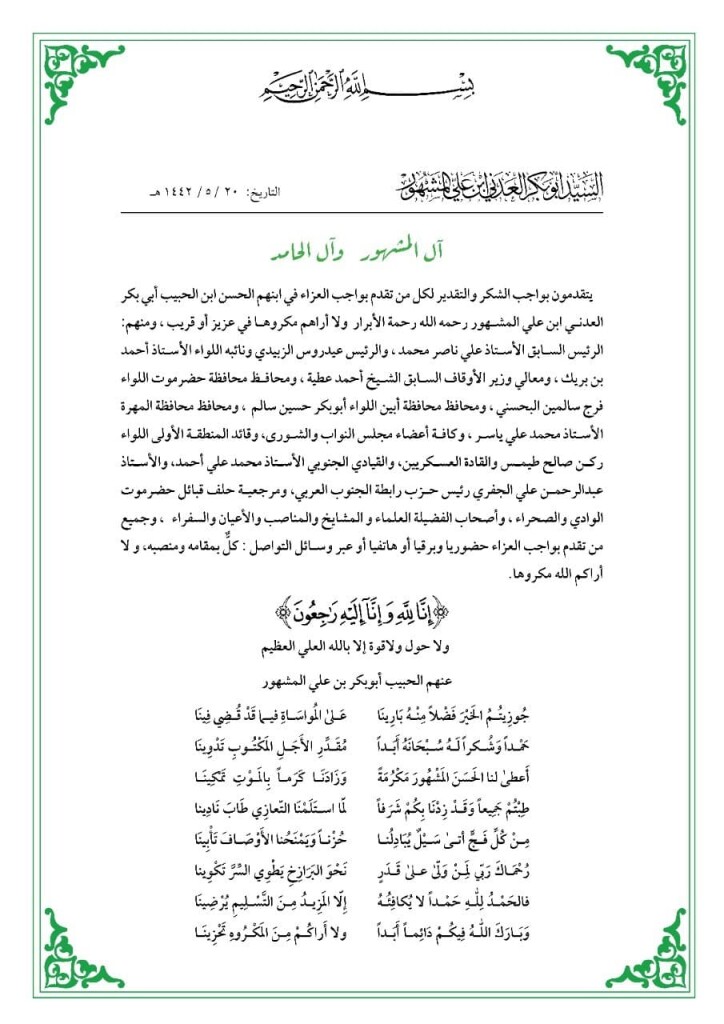 بِسْمِ اللَّهِ الرَّحْمَٰنِ الرَّحِيمِ
السَّيِّد أبوبكر العدني ابن علي المشهور
التاريخ: ٢٠ / ٥ / ١٤٤٢ هـ
آل المشهور وآل الحامد
يتقدمون بواجب الشكر والتقدير لكل من تقدم بواجب العزاء في ابنهم الحسن ابن الحبيب أبي بكر
العدني ابن علي المشهور رحمه الله رحمة الأبرار ولا أراهم مكروها في عزيز أو قريب ، ومنهم:
الرئيس السابق الأستاذ علي ناصر محمد ، والرئيس عيدروس الزبيدي ونائبه اللواء الأستاذ أحمد
بن بريك ، ومعالي وزير الأوقاف السابق الشيخ أحمد عطية ، ومحافظ محافظة حضرموت اللواء
فرج سالمين البحسني ، ومحافظ محافظة أبين اللواء أبوبكر حسين سالم ، ومحافظ محافظة المهرة
الأستاذ محمد علي ياسر ، وكافة أعضاء مجلس النواب والشورى، وقائد المنطقة الأولى اللواء
ركن صالح طيمس والقادة العسكريين، والقيادي الجنوبي الأستاذ محمد علي أحمد، والأستاذ
عبدالرحمن علي الجفري رئيس حزب رابطة الجنوب العربي، ومرجعية حلف قبائل حضرموت
الوادي والصحراء ، وأصحاب الفضيلة العلماء و المشايخ والمناصب والأعيان والسفراء ، وجميع
من تقدم بواجب العزاء حضوريا وبرقيا أو هاتفيا أو عبر وسائل التواصل : كلٌّ بمقامه ومنصبه، و لا
أراكم الله مكروها.
﴿إِنَّا لِلَّهِ وَإِنَّآ إِلَيْهِ رَاجِعُونَ﴾
ولا حول ولاقوة إلا بالله العلي العظيم
عنهم الحبيب أبوبكر بن علي المشهور
جُوزِيتُمُ الخَيْرَ فَضْلاً مِنْهُ بَارِينَا عَلىٰ المُواسَاةِ فيما قَدْ قُضِي فِينَا
حَمْداً وَشُكراً لَهُ سُبْحَانَهُ أَبَداً مُقَدِّرِ الأَجَلِ المَكْتُوبِ تَدْوِينَا
أَعطىٰ لنا الحَسَنَ المَشْهُورَ مَكْرُمَةً وَزَادَنَا كَرَماً بِالمَوْتِ تَمْكِينَا
طِبْتُمْ جَمِيعاً وَقَدْ زِدْنَا بِكُمْ شَرَفاً لمّا استَلَمْنَا التَّعازِي طَابَ نَادِينا
مِنْ كُلِّ فَجٍّ أتىٰ سَيْلٌ يُبَادِلُنا حُزْناً وَيَمْنَحُنا الأَوْصَافَ تَأْبِينَا
رُحْمَاكَ رَبِّي لِمَنْ وَلّىٰ عَلىٰ قَدَرٍ نَحْوَ البَرَازِخِ يَطْوِي السِّرَّ تَكْوِينا
فالحَمْدُ لِلّٰهِ حَمْداً لا يُكافِئُهُ إِلّا المَزِيدُ مِنَ التَّسْلِيمِ يُرْضِينَا
وَبَارَكَ اللهُ فِيكُمْ دَائِماً أَبَداً ولا أَراكُمْ مِنَ المَكْرُوهِ تَحْزِينَا